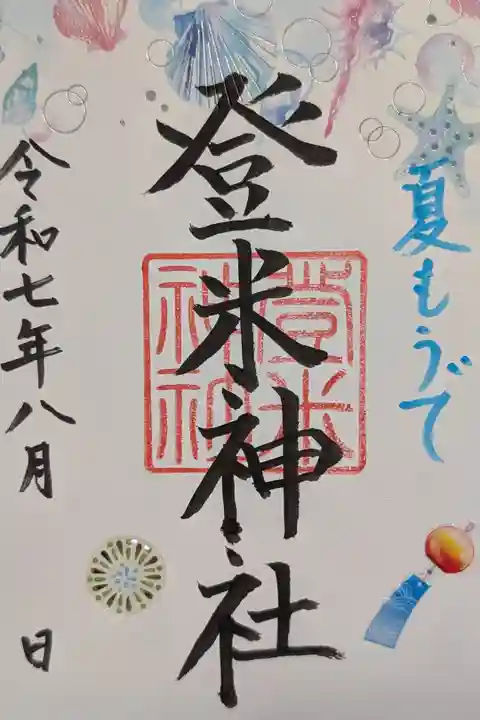 夏もうで
登米神社
登米
神社
令和七年八月 日